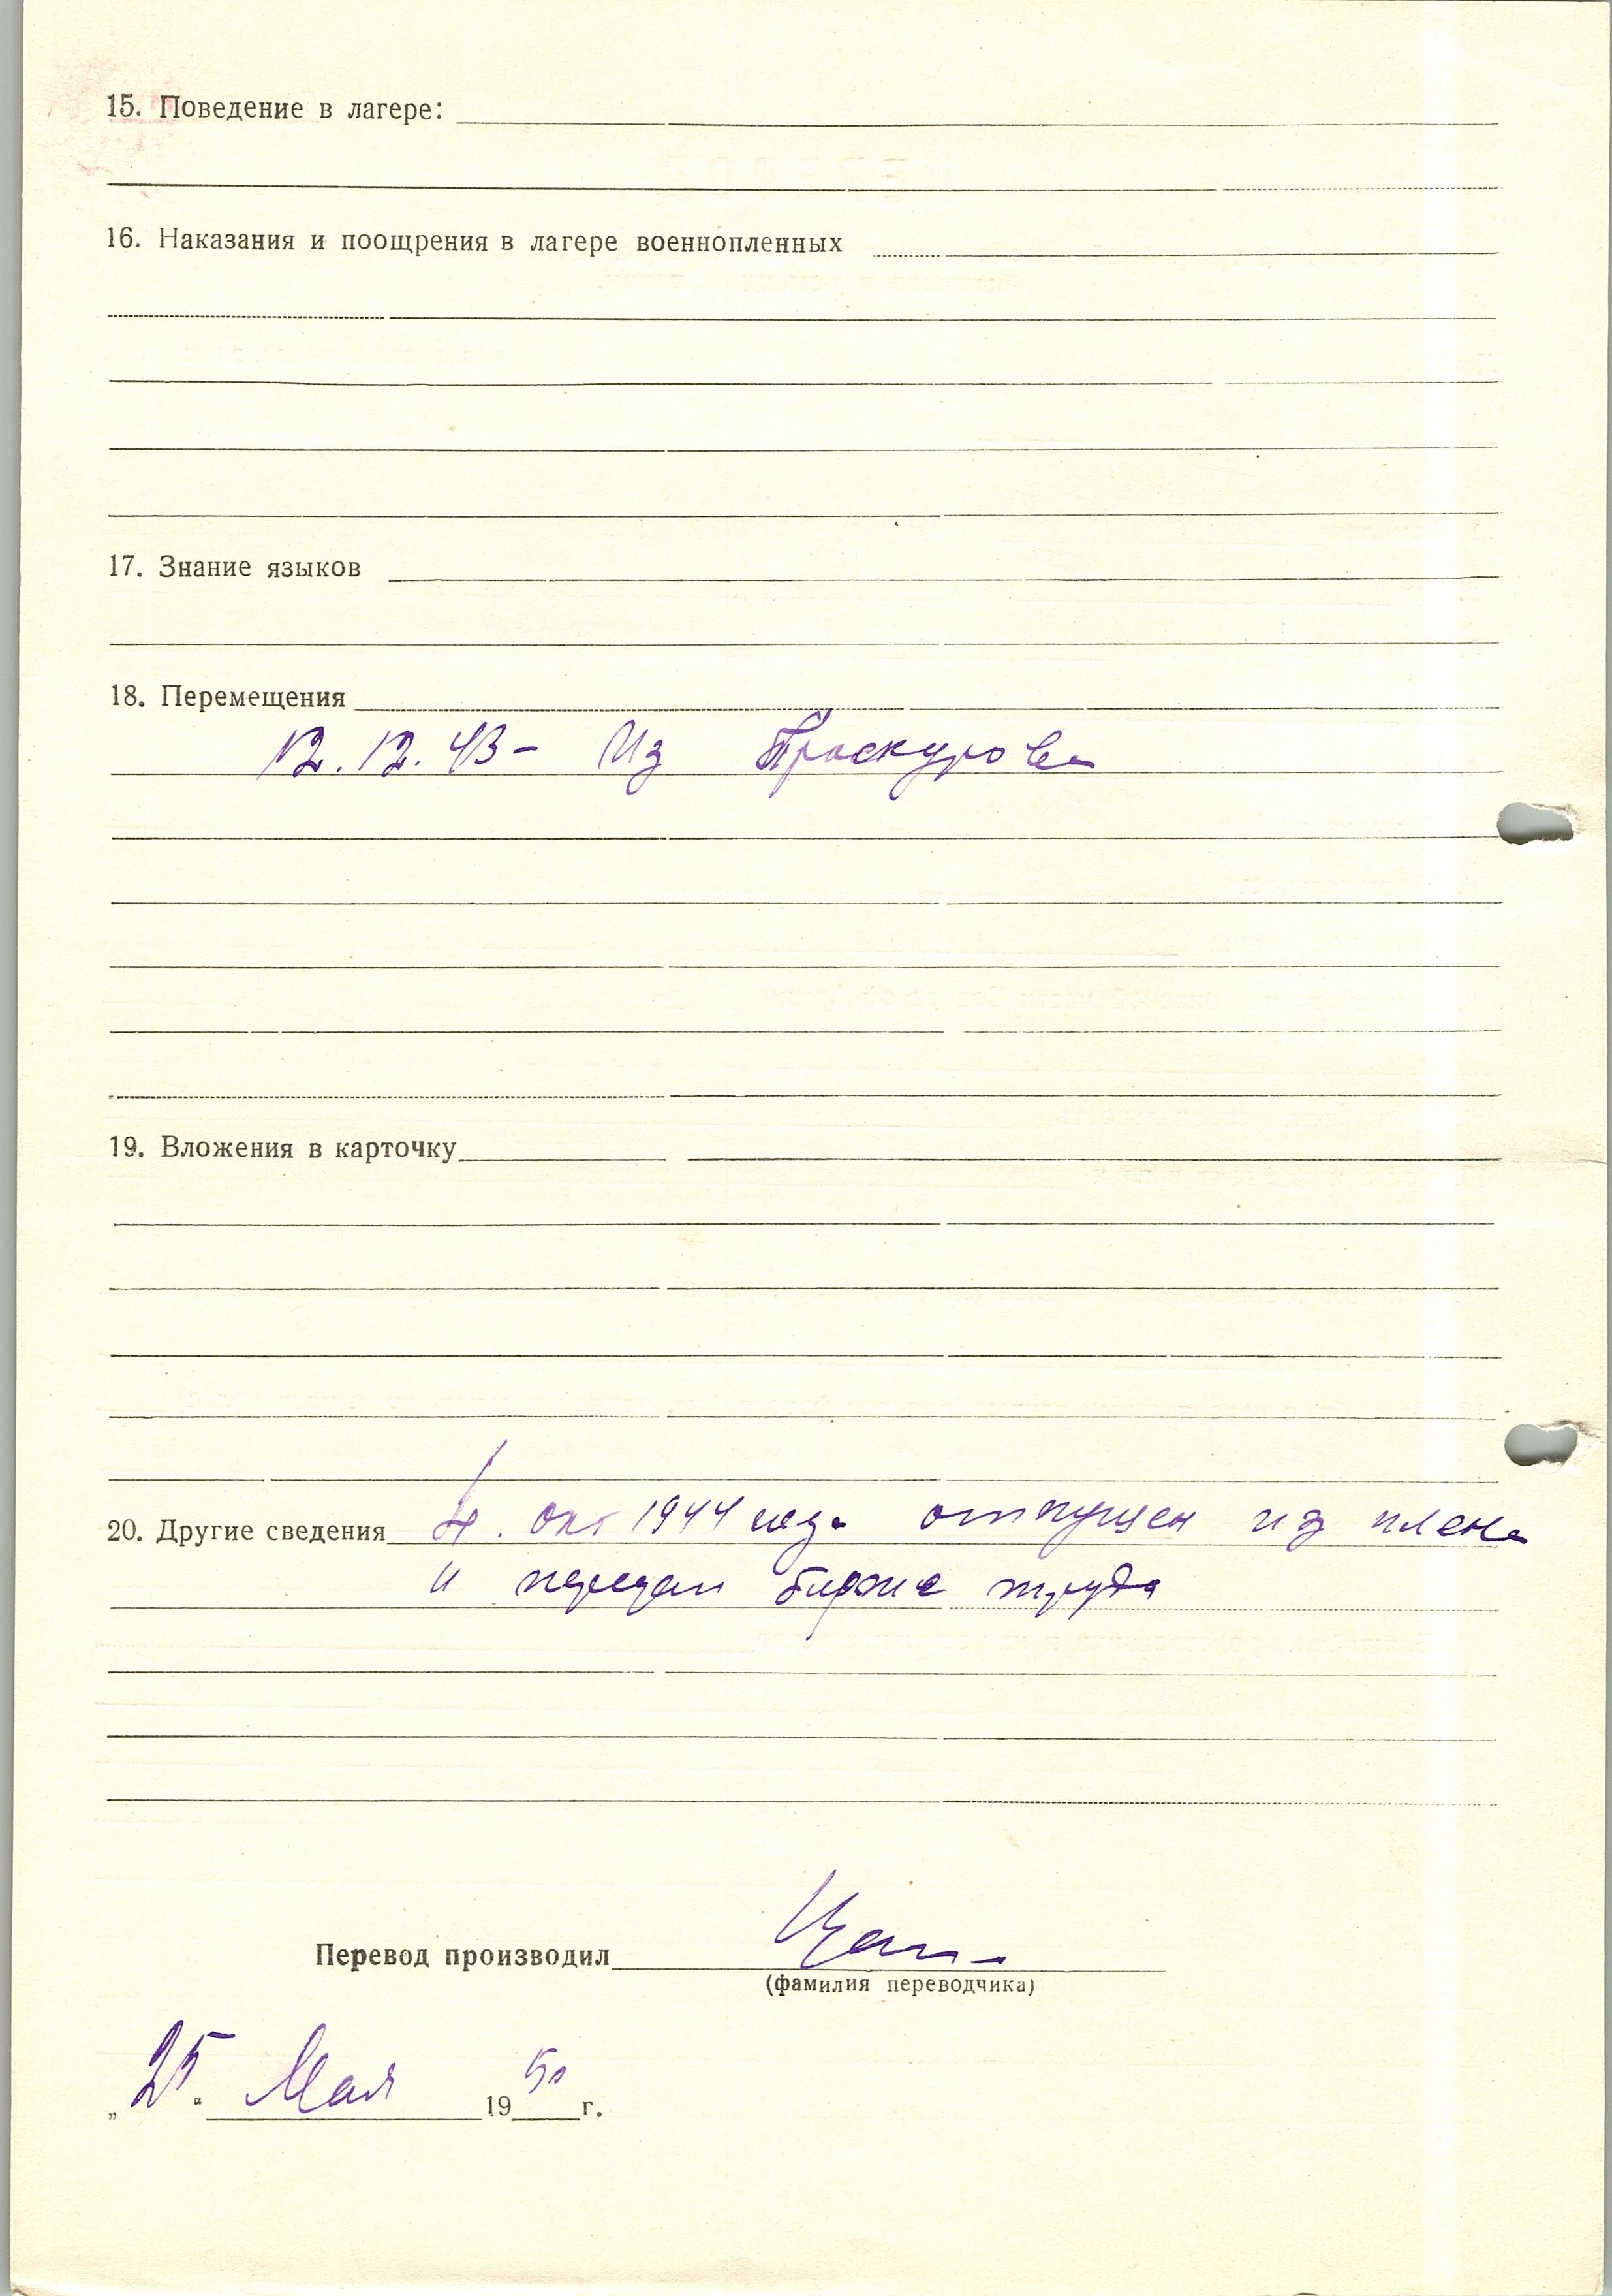 15. Поведение в лагере:
16. Наказания и поощрения в лагере военнопленных
17. Знание языков
18. Перемещения
12.12.43- Из Проскурова
19. Вложения в карточку
20. Другие сведения 4. окт 1944 года отпущен из плена
и передан бирже труда
Перевод производил
(фамилия переводчика)
„25." Мая 1950 г.